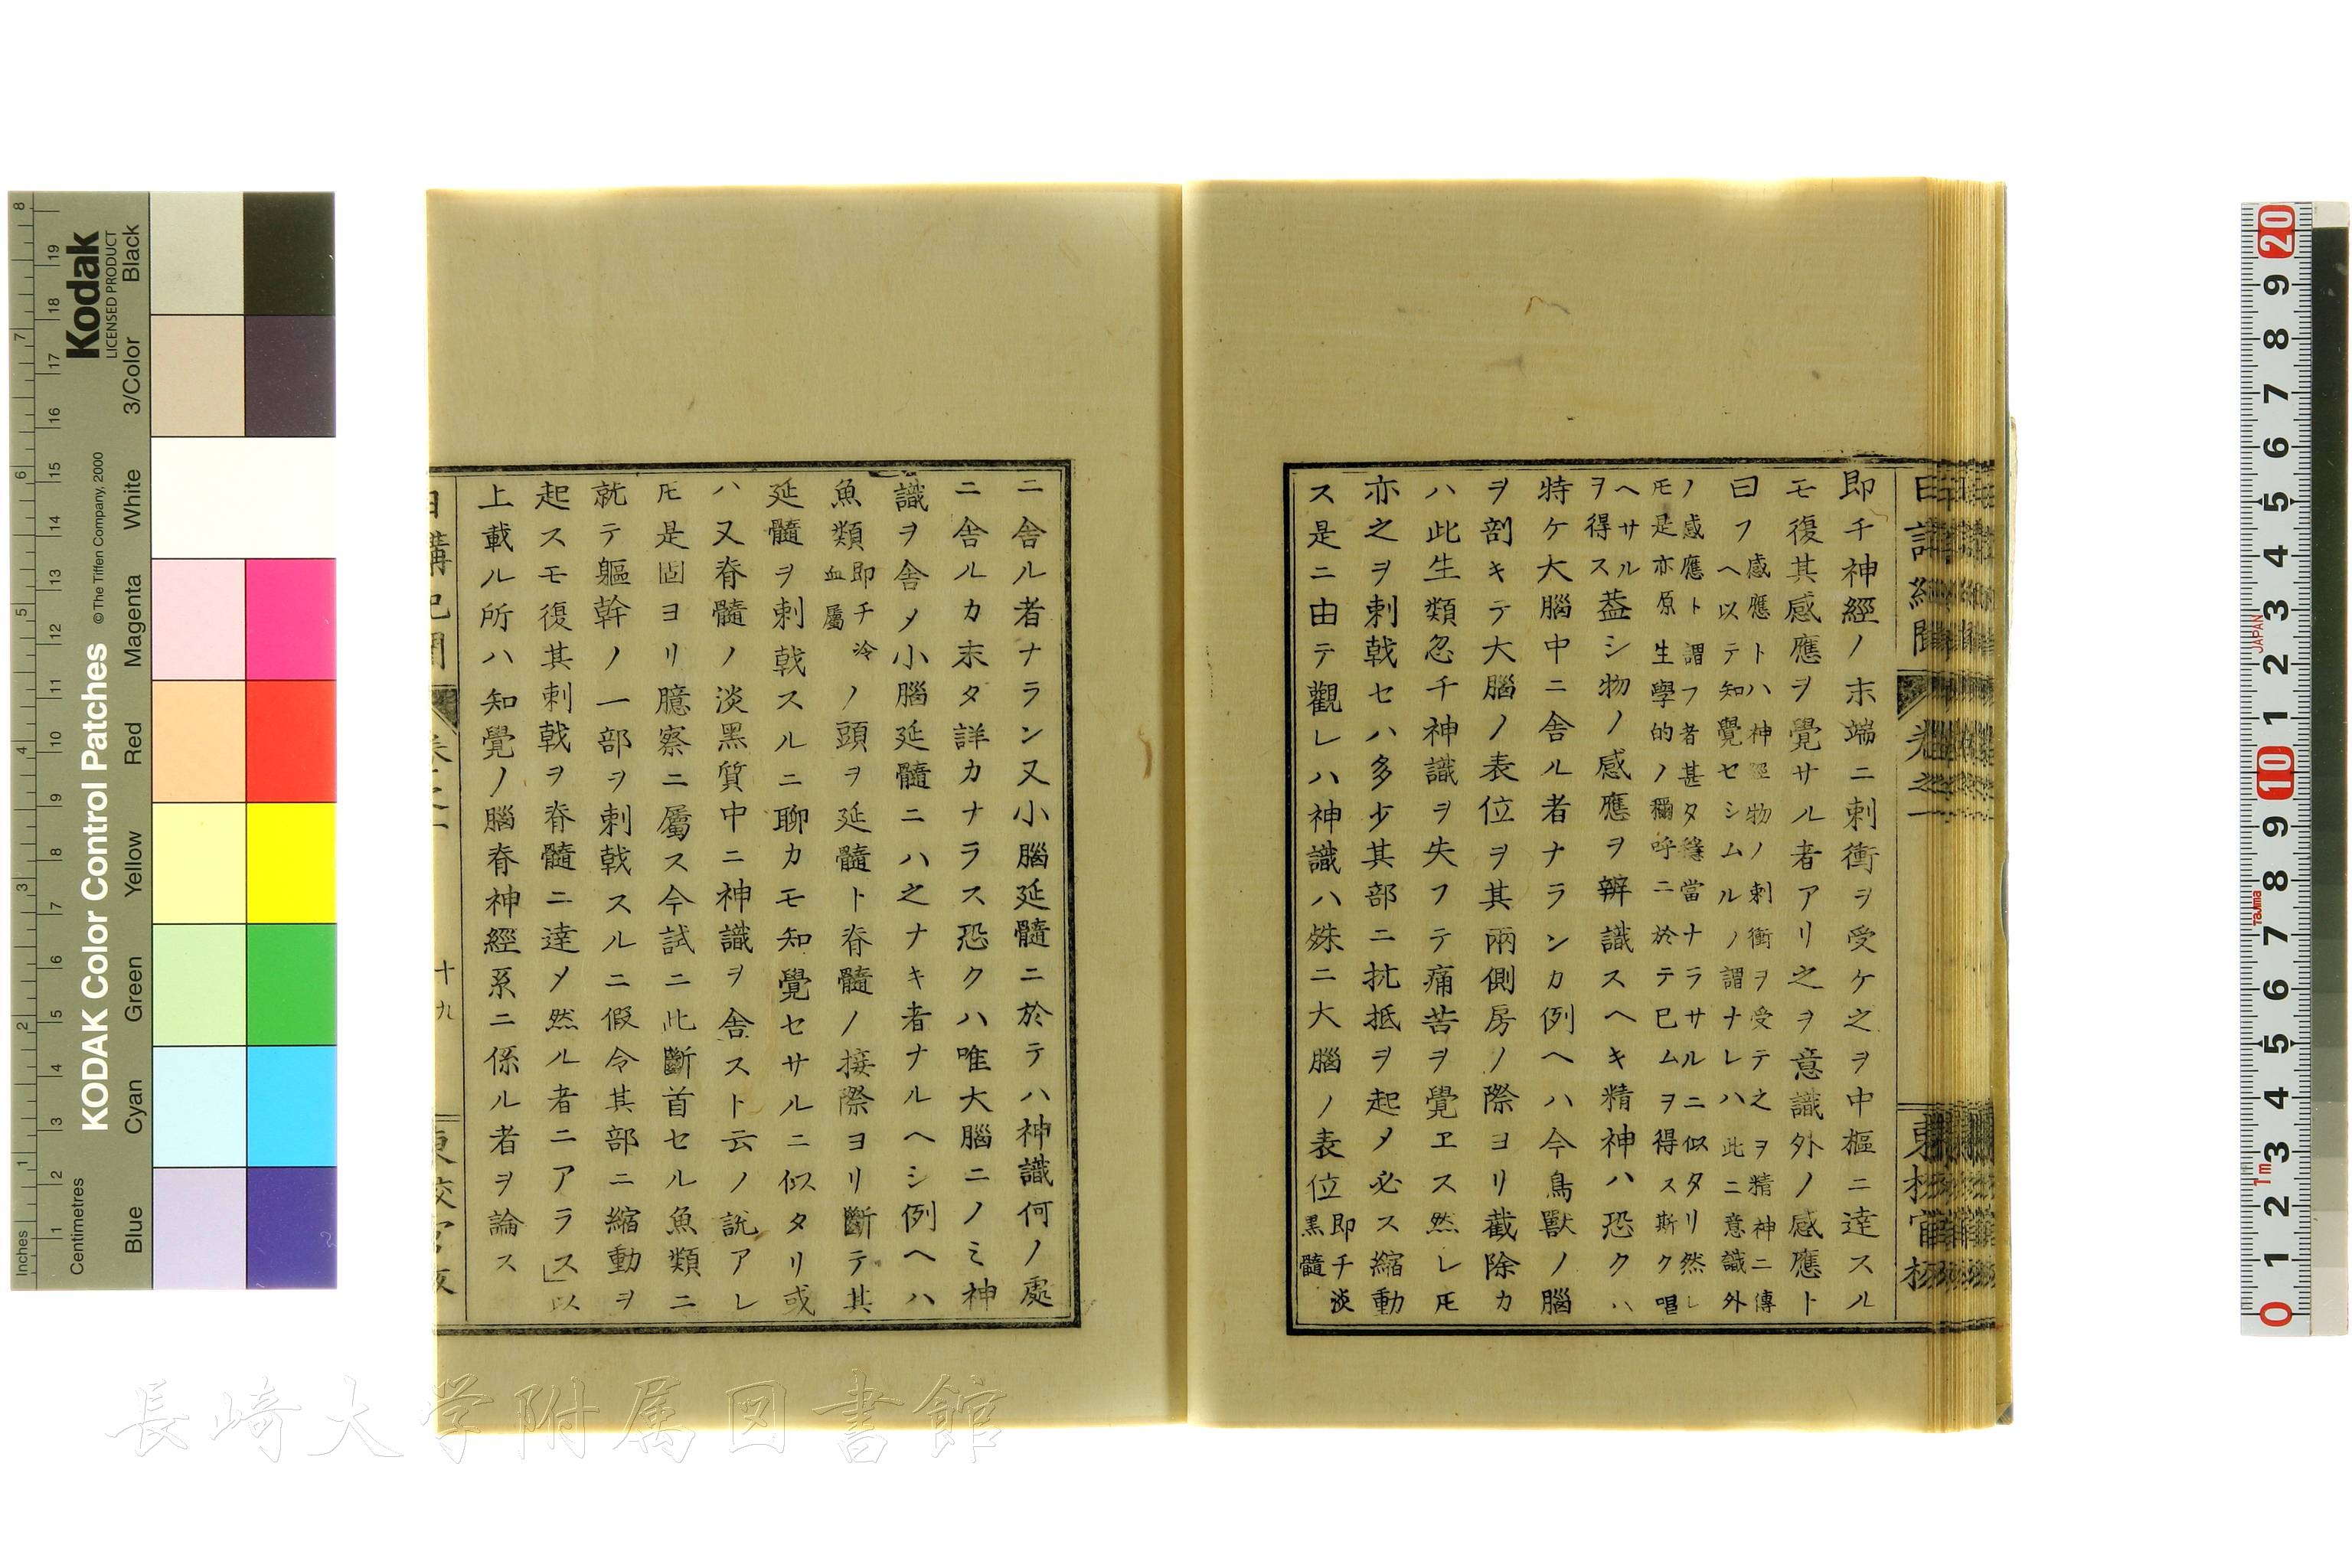 日講紀聞 卷之一 東校官板
即チ神經ノ末端ニ刺衝ヲ受ケ之ヲ中樞ニ逹スル
モ復其感應ヲ覺サル者アリ之ヲ意識外ノ感應ト
曰フ
感應トハ神經物ノ刺衝ヲ受テ之ヲ精神ニ傳
ヘ以テ知覺セシムルノ謂ナレハ此ニ意識外
ノ感應ト謂フ者甚タ穩當ナラサルニ似タリ然レ
𪜈是亦原生學的ノ稱呼ニ於テ已ムヲ得ス斯ク唱
ヘサル
ヲ得ス
葢シ物ノ感應ヲ辨識スヘキ精神ハ恐クハ
特ケ大腦中ニ舍ル者ナランカ例ヘハ今鳥獸ノ腦
ヲ剖キテ大腦ノ表位ヲ其兩側房ノ際ヨリ截除カ
ハ此生類忽チ神識ヲ失フテ痛苦ヲ覺ヱス然レ𪜈
亦之ヲ刺戟セハ多少其部ニ抗抵ヲ起メ必ス縮動
ス是ニ由テ觀レハ神識ハ殊ニ大腦ノ表位
即チ淡
黑髓
ニ舍ル者ナラン又小腦延髓ニ於テハ神識何ノ處
ニ舍ルカ末タ詳カナラス恐クハ唯大腦ニノミ神
識ヲ舍メ小腦延髓ニハ之ナキ者ナルヘシ例ヘハ
魚類
即チ冷
血屬
ノ頭ヲ延髓ト脊髓ノ接際ヨリ斷テ其
延髓ヲ刺戟スルニ聊カモ知覺セサルニ似タリ或
ハ又脊髓ノ淡黑質中ニ神識ヲ舍スト云ノ說アレ
𪜈是固ヨリ臆察ニ屬ス今試ニ此斷首セル魚類ニ
就テ軀幹ノ一部ヲ刺戟スルニ假令其部ニ縮動ヲ
起スモ復其刺戟ヲ脊髓ニ逹メ然ル者ニアラス」以
上載ル所ハ知覺ノ腦脊神經系ニ係ル者ヲ論ス
日講紀聞 卷之一 十九 東校官板
長崎大学附属図書館
Kodak
LICENSED PRODUCT
KODAK Color Control Patches
© The Tiffen Company, 2000
Inches 1 2 3 4 5 6 7 8
Centimetres 1 2 3 4 5 6 7 8 9 10 11 12 13 14 15 16 17 18 19
Blue Cyan Green Yellow Red Magenta White 3/Color Black
20 9 8 7 6 5 4 3 2 1 10 9 8 7 6 5 4 3 2 1 0
JAPAN
Tajima
1m